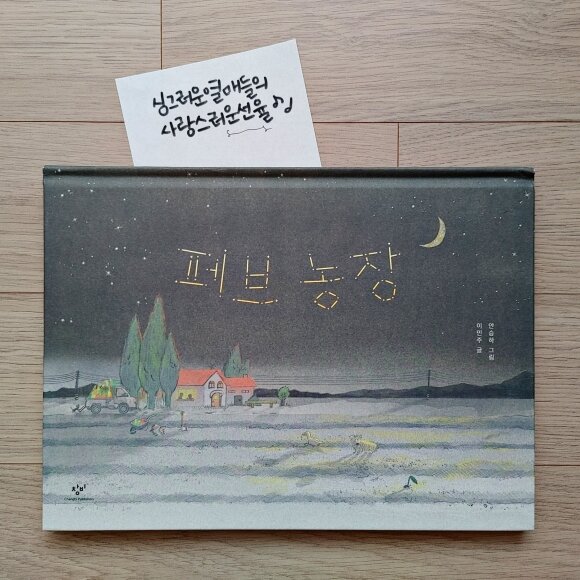 싱그러운 열매들의
사랑스러운 선율♪
페브 농장
이민주 글
안승하 그림
창비
Changbi Publishers